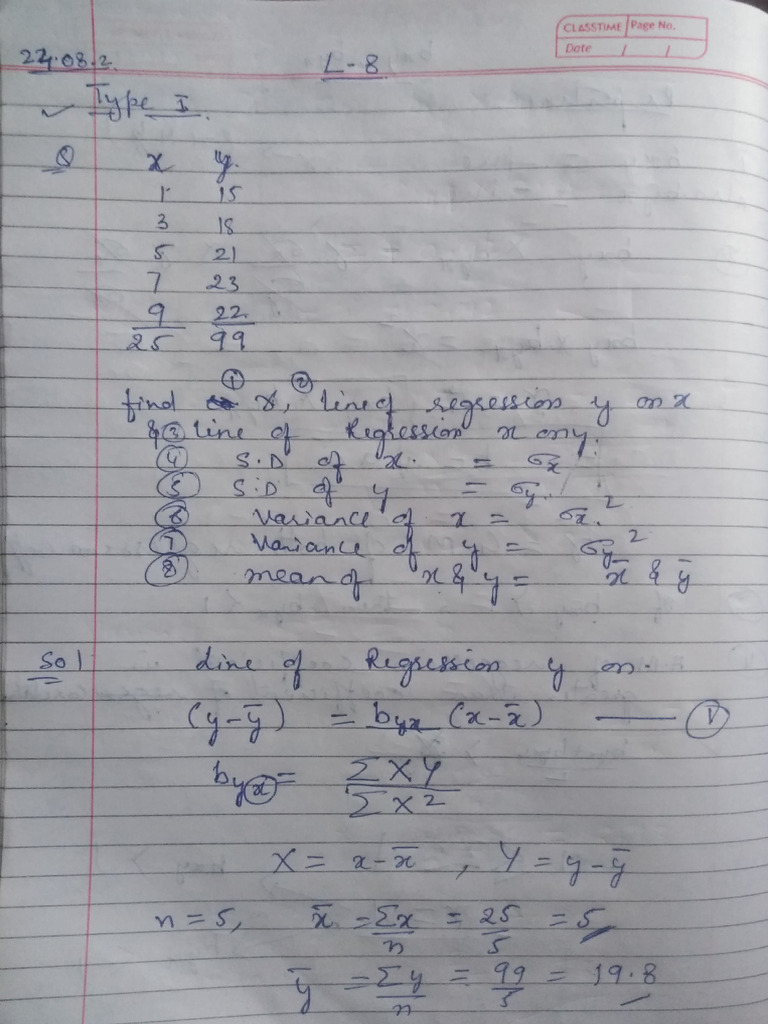 CLASSTIME Page No.
Date / /
24.08.2
L-8
Type I.
Q x y.
1 15
3 18
5 21
7 23
9 22
25 99
① ②
find r, line of regression y on x
& ③ line of Regression x on y.
④ S.D of x. = σx
⑤ S.D of y = σy.
⑥ Variance of x = σx.²
⑦ Variance of y = σy²
⑧ mean of x & y = x̄ & ȳ
Sol Line of Regression y on.
(y-ȳ) = byx (x-x̄) —— Ⓥ
byx = ΣXY / ΣX2
X = x-x̄ , Y = y-ȳ
n = 5, x̄ = Σx/n = 25/5 = 5
ȳ = Σy/n = 99/5 = 19.8